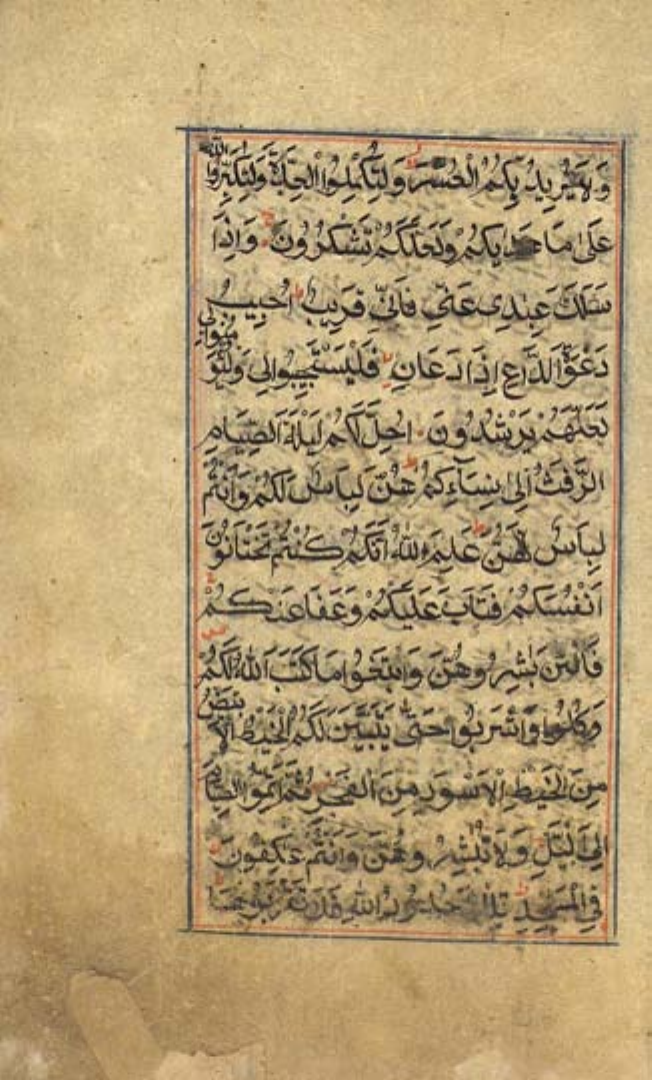 وَلَا يُرِيدُ بِكُمُ الْعُسْرَ وَلِتُكْمِلُوا الْعِدَّةَ وَلِتُكَبِّرُوا اللّٰهَ
عَلٰى مَا هَدٰيكُمْ وَلَعَلَّكُمْ تَشْكُرُونَ وَاِذَا
سَئَلَكَ عِبَادِى عَنِّي فَاِنِّي قَرِيبٌ اُجِيبُ
دَعْوَةَ الدَّاعِ اِذَا دَعَانِ فَلْيَسْتَجِيبُوا لِى وَلْيُؤْمِنُوا بِى
لَعَلَّهُمْ يَرْشُدُونَ اُحِلَّ لَكُمْ لَيْلَةَ الصِّيَامِ
الرَّفَثُ اِلٰى نِسَآءِكُمْ هُنَّ لِبَاسٌ لَكُمْ وَاَنْتُمْ
لِبَاسٌ لَهُنَّ عَلِمَ اللّٰهُ اَنَّكُمْ كُنْتُمْ تَخْتَانُونَ
اَنْفُسَكُمْ فَتَابَ عَلَيْكُمْ وَعَفَا عَنْكُمْ
فَالْئٰنَ بَاشِرُوهُنَّ وَابْتَغُوا مَا كَتَبَ اللّٰهُ لَكُمْ
وَكُلُوا وَاشْرَبُوا حَتّٰى يَتَبَيَّنَ لَكُمُ الْخَيْطُ الْاَبْيَضُ
مِنَ الْخَيْطِ الْاَسْوَدِ مِنَ الْفَجْرِ ثُمَّ اَتِمُّوا الصِّيَامَ
اِلَى الَّيْلِ وَلَا تُبَاشِرُوهُنَّ وَاَنْتُمْ عٰكِفُونَ
فِى الْمَسٰجِدِ تِلْكَ حُدُودُ اللّٰهِ فَلَا تَقْرَبُوهَا